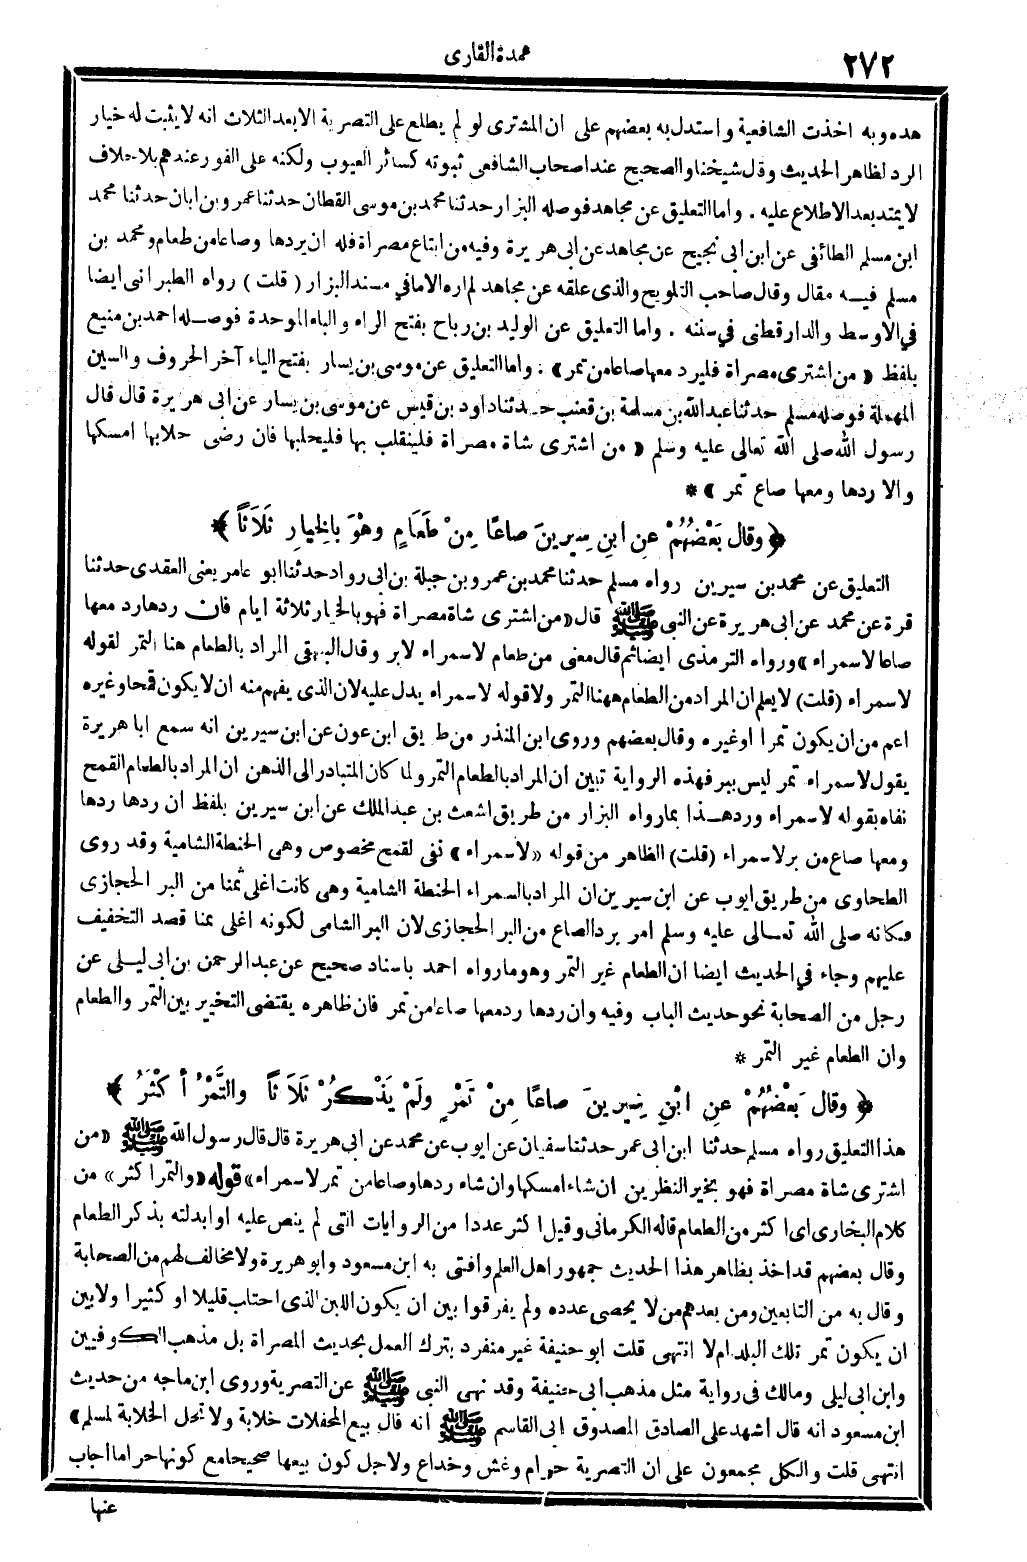 ٢٧٢
عمدة القارى
هذه وبه اخذت الشافعية واستدل به بعضهم على ان المشترى لو لم يطلع على التصرية الا بعد الثلاث انه لا يثبت له خيار
الرد لظاهر الحديث وقال شيخنا والصحيح عند اصحاب الشافعى ثبوته كسائر العيوب ولكنه على الفور عندهم بلا خلاف
لا يمتد بعد الاطلاع عليه . واما التعليق عن مجاهد فوصله البزار حدثنا محمد بن موسى القطان حدثنا عمرو بن ابان حدثنا محمد
ابن مسلم الطائفى عن ابن ابى نجيح عن مجاهد عن ابى هريرة وفيه من ابتاع مصراة فله ان يردها وصاعا من طعام ومحمد بن
مسلم فيه مقال وقال صاحب التلويح والذى علقه عن مجاهد لم اره الا ما في مسند البزار ( قلت ) رواه الطبرانى ايضا
في الاوسط والدارقطنى في سننه . واما التعليق عن الوليد بن رباح بفتح الراء والباء الموحدة فوصله احمد بن منيع
بلفظ « من اشترى مصراة فليرد معها صاعا من تمر » : واما التعليق عن موسى بن يسار بفتح الياء آخر الحروف والسين
المهملة فوصله مسلم حدثنا عبدالله بن مسلمة بن قعنب حدثنا داود بن قيس عن موسى بن يسار عن ابى هريرة قال قال
رسول الله صلى الله تعالى عليه وسلم « من اشترى شاة مصراة فلينقلب بها فليحلبها فان رضى حلابها امسكها
والا ردها ومعها صاع تمر » *
﴿ وقال بَعْضُهُمْ عنِ ابنِ سِيرينَ صاعًا مِنْ طَعَامٍ وهْوَ بالخِيارِ ثَلاَثاً ﴾
التعليق عن محمد بن سيرين رواه مسلم حدثنا محمد بن عمرو بن جبلة بن ابى رواد حدثنا ابو عامر يعنى العقدى حدثنا
قرة عن محمد عن ابى هريرة عن النبى ﷺ قال « من اشترى شاة مصراة فهو بالخيار ثلاثة ايام فان ردها رد معها
صاعا لا سمراء » ورواه الترمذى ايضا ثم قال معنى من طعام لا سمراء لا بر وقال البيهقى المراد بالطعام هنا التمر لقوله
لا سمراء (قلت) لا يعلم ان المراد من الطعام ههنا التمر ولا قوله لا سمراء يدل عليه لان الذى يفهم منه ان لا يكون قمحا وغيره
اعم من ان يكون تمرا او غيره وقال بعضهم وروى ابن المنذر من طريق ابن عون عن ابن سيرين انه سمع ابا هريرة
يقول لا سمراء تمر ليس ببر فهذه الرواية تبين ان المراد بالطعام التمر ولما كان المتبادر الى الذهن ان المراد بالطعام القمح
نفاه بقوله لا سمراء ورد هذا بما رواه البزار من طريق اشعث بن عبدالملك عن ابن سيرين بلفظ ان ردها ردها
ومعها صاع من بر لا سمراء (قلت) الظاهر من قوله «لا سمراء» نفى لقمح مخصوص وهى الحنطة الشامية وقد روى
الطحاوى من طريق ايوب عن ابن سيرين ان المراد بالسمراء الحنطة الشامية وهى كانت اغلى ثمنا من البر الحجازى
فكانه صلى الله تعالى عليه وسلم امر برد الصاع من البر الحجازى لان البر الشامى لكونه اغلى ثمنا قصد التخفيف
عليهم وجاء في الحديث ايضا ان الطعام غير التمر وهو ما رواه احمد باسناد صحيح عن عبدالرحمن بن ابى ليلى عن
رجل من الصحابة نحو حديث الباب وفيه وان ردها رد معها صاعا من تمر فان ظاهره يقتضى التخيير بين التمر والطعام
وان الطعام غير التمر *
﴿ وقال بَعْضُهُمْ عنِ ابْنِ سِيرينَ صاعًا مِنْ تَمْرٍ ولَمْ يَذْكُرْ ثَلاَثاً والتَّمْرُ أكْثَرُ ﴾
هذا التعليق رواه مسلم حدثنا ابن ابى عمر حدثنا سفيان عن ايوب عن محمد عن ابى هريرة قال قال رسول الله ﷺ «من
اشترى شاة مصراة فهو بخير النظرين ان شاء امسكها وان شاء ردها وصاعا من تمر لا سمراء» قوله «والتمر اكثر» من
كلام البخارى اى اكثر من الطعام قاله الكرمانى وقيل اكثر عددا من الروايات التى لم ينص عليه او ابدلته بذكر الطعام
وقال بعضهم قد اخذ بظاهر هذا الحديث جمهور اهل العلم وافتى به ابن مسعود وابو هريرة ولا مخالف لهم من الصحابة
وقال به من التابعين ومن بعدهم من لا يحصى عدده ولم يفرقوا بين ان يكون اللبن الذى احتلب قليلا او كثيرا ولا بين
ان يكون تمر تلك البلد ام لا انتهى قلت ابو حنيفة غير منفرد بترك العمل بحديث المصراة بل مذهب الكوفيين
وابن ابى ليلى ومالك فى رواية مثل مذهب ابى حنيفة وقد نهى النبى ﷺ عن التصرية وروى ابن ماجه من حديث
ابن مسعود انه قال اشهد على الصادق المصدوق ابى القاسم ﷺ انه قال بيع المحفلات خلابة ولا تحل الخلابة لمسلم»
انتهى قلت والكل مجمعون على ان التصرية حرام وغش وخداع ولاجل كون بيعها صحيحا مع كونها حراما اجاب
عنها